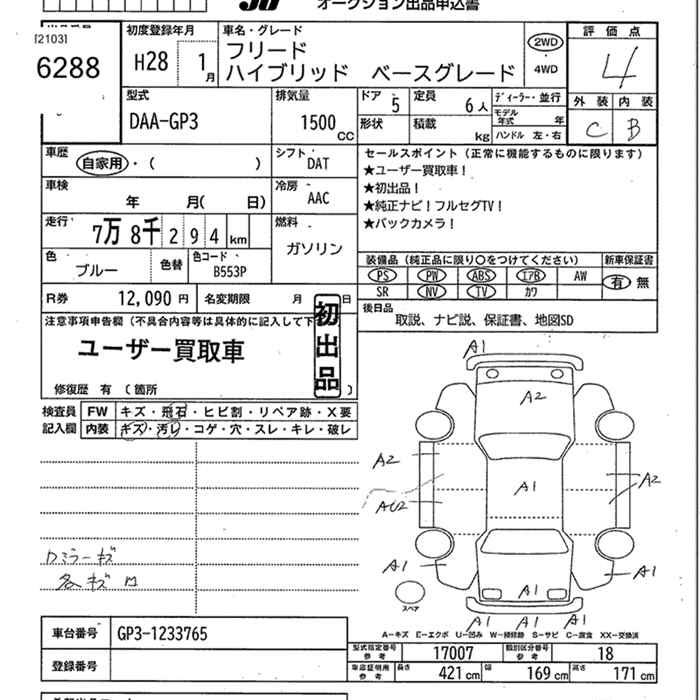 オークション出品申込書
出品番号
[2103]
6288
初度登録年月
H28 1月
車名・グレード
フリード
ハイブリッド ベースグレード
2WD
4WD
評価点
4
外装 内装
C B
型式
DAA-GP3
排気量
1500 CC
ドア 5
定員 6人
形状
積載 kg
ディーラー・並行
モデル年式 年
ハンドル 左・右
車歴
自家用・( )
シフト
DAT
車検
年 月( 日)
冷房
AAC
走行
7万 8千 2 9 4 km
燃料
ガソリン
色
ブルー
色替
色コード
B553P
セールスポイント (正常に機能するものに限ります)
★ユーザー買取車!
★初出品!
★純正ナビ!フルセグTV!
★バックカメラ!
装備品 (純正品に限り○をつけてください)
新車保証書
PS PW ABS エアB AW
SR NV TV カワ
有 無
R券 12,090 円
名変期限 月 日
後日品
取説、ナビ説、保証書、地図SD
注意事項申告欄 (不具合内容等は具体的に記入して下
ユーザー買取車
初出品
修復歴 有 (箇所 )
検査員記入欄
FW キズ・飛石・ヒビ割・リペア跡・X要
内装 キズ・汚レ・コゲ・穴・スレ・キレ・破レ
A1
A2
A2
A1
A2
AU2
A1
A1
A1
A1 A1 A1
カミラーキズ
スペア
A-キズ E-エクボ U-凹み W-補修跡 S-サビ C-腐食 XX-交換済
車台番号
GP3-1233765
登録番号
型式指定番号 参考
17007
類別区分番号 参考
18
車庫証明用 参考
長さ 421 cm
幅 169 cm
高さ 171 cm